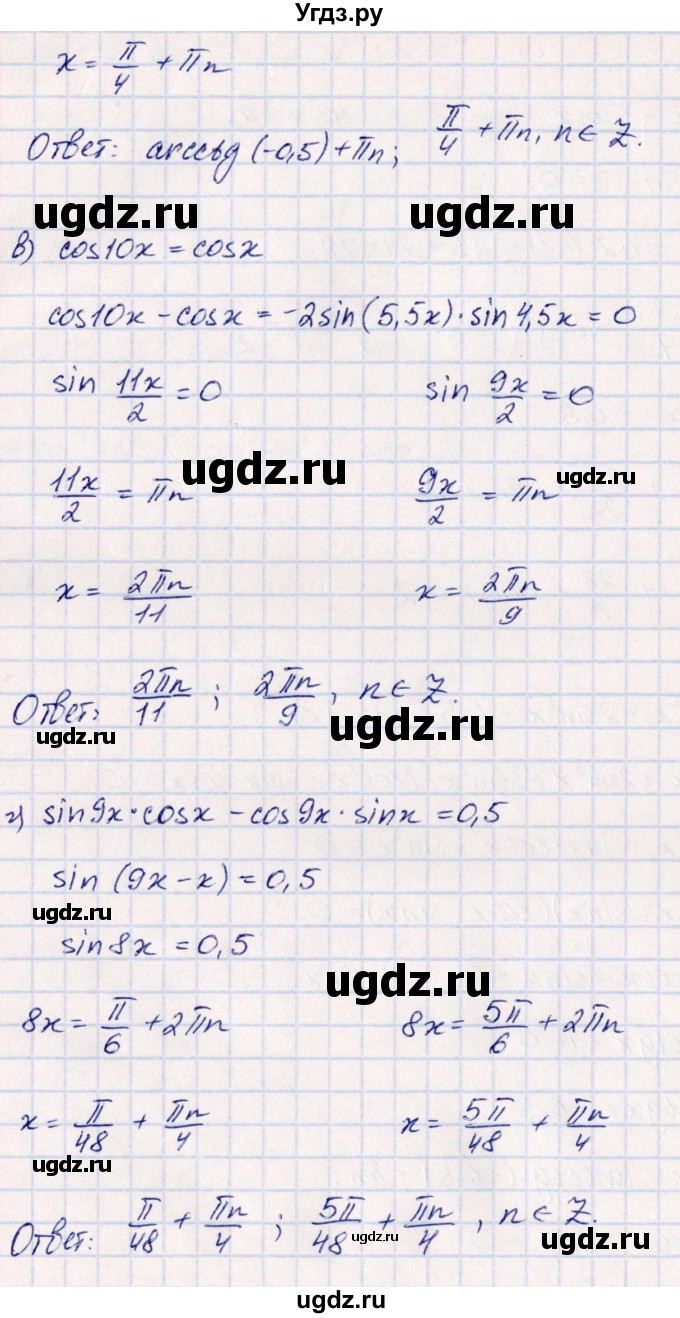 Угдз.ру
x = π/4 + πn
Ответ: arcctg (-0,5) + πn; π/4 + πn, n ∈ Z.
ugdz.ru ugdz.ru
в) cos10x = cosx
cos10x - cosx = -2sin(5,5x)·sin4,5x = 0
sin 11x/2 = 0 sin 9x/2 = 0
ugdz.ru
11x/2 = πn 9x/2 = πn
ugdz.ru
x = 2πn/11 x = 2πn/9
Ответ: 2πn/11 ; 2πn/9 , n ∈ Z.
ugdz.ru ugdz.ru
г) sin9x·cosx - cos9x·sinx = 0,5
sin (9x-x) = 0,5
ugdz.ru
sin8x = 0,5
ugdz.ru
8x = π/6 + 2πn 8x = 5π/6 + 2πn
x = π/48 + πn/4 x = 5π/48 + πn/4
ugdz.ru
Ответ: π/48 + πn/4 ; 5π/48 + πn/4 , n ∈ Z.
ugdz.ru ugdz.ru
ugdz.ru